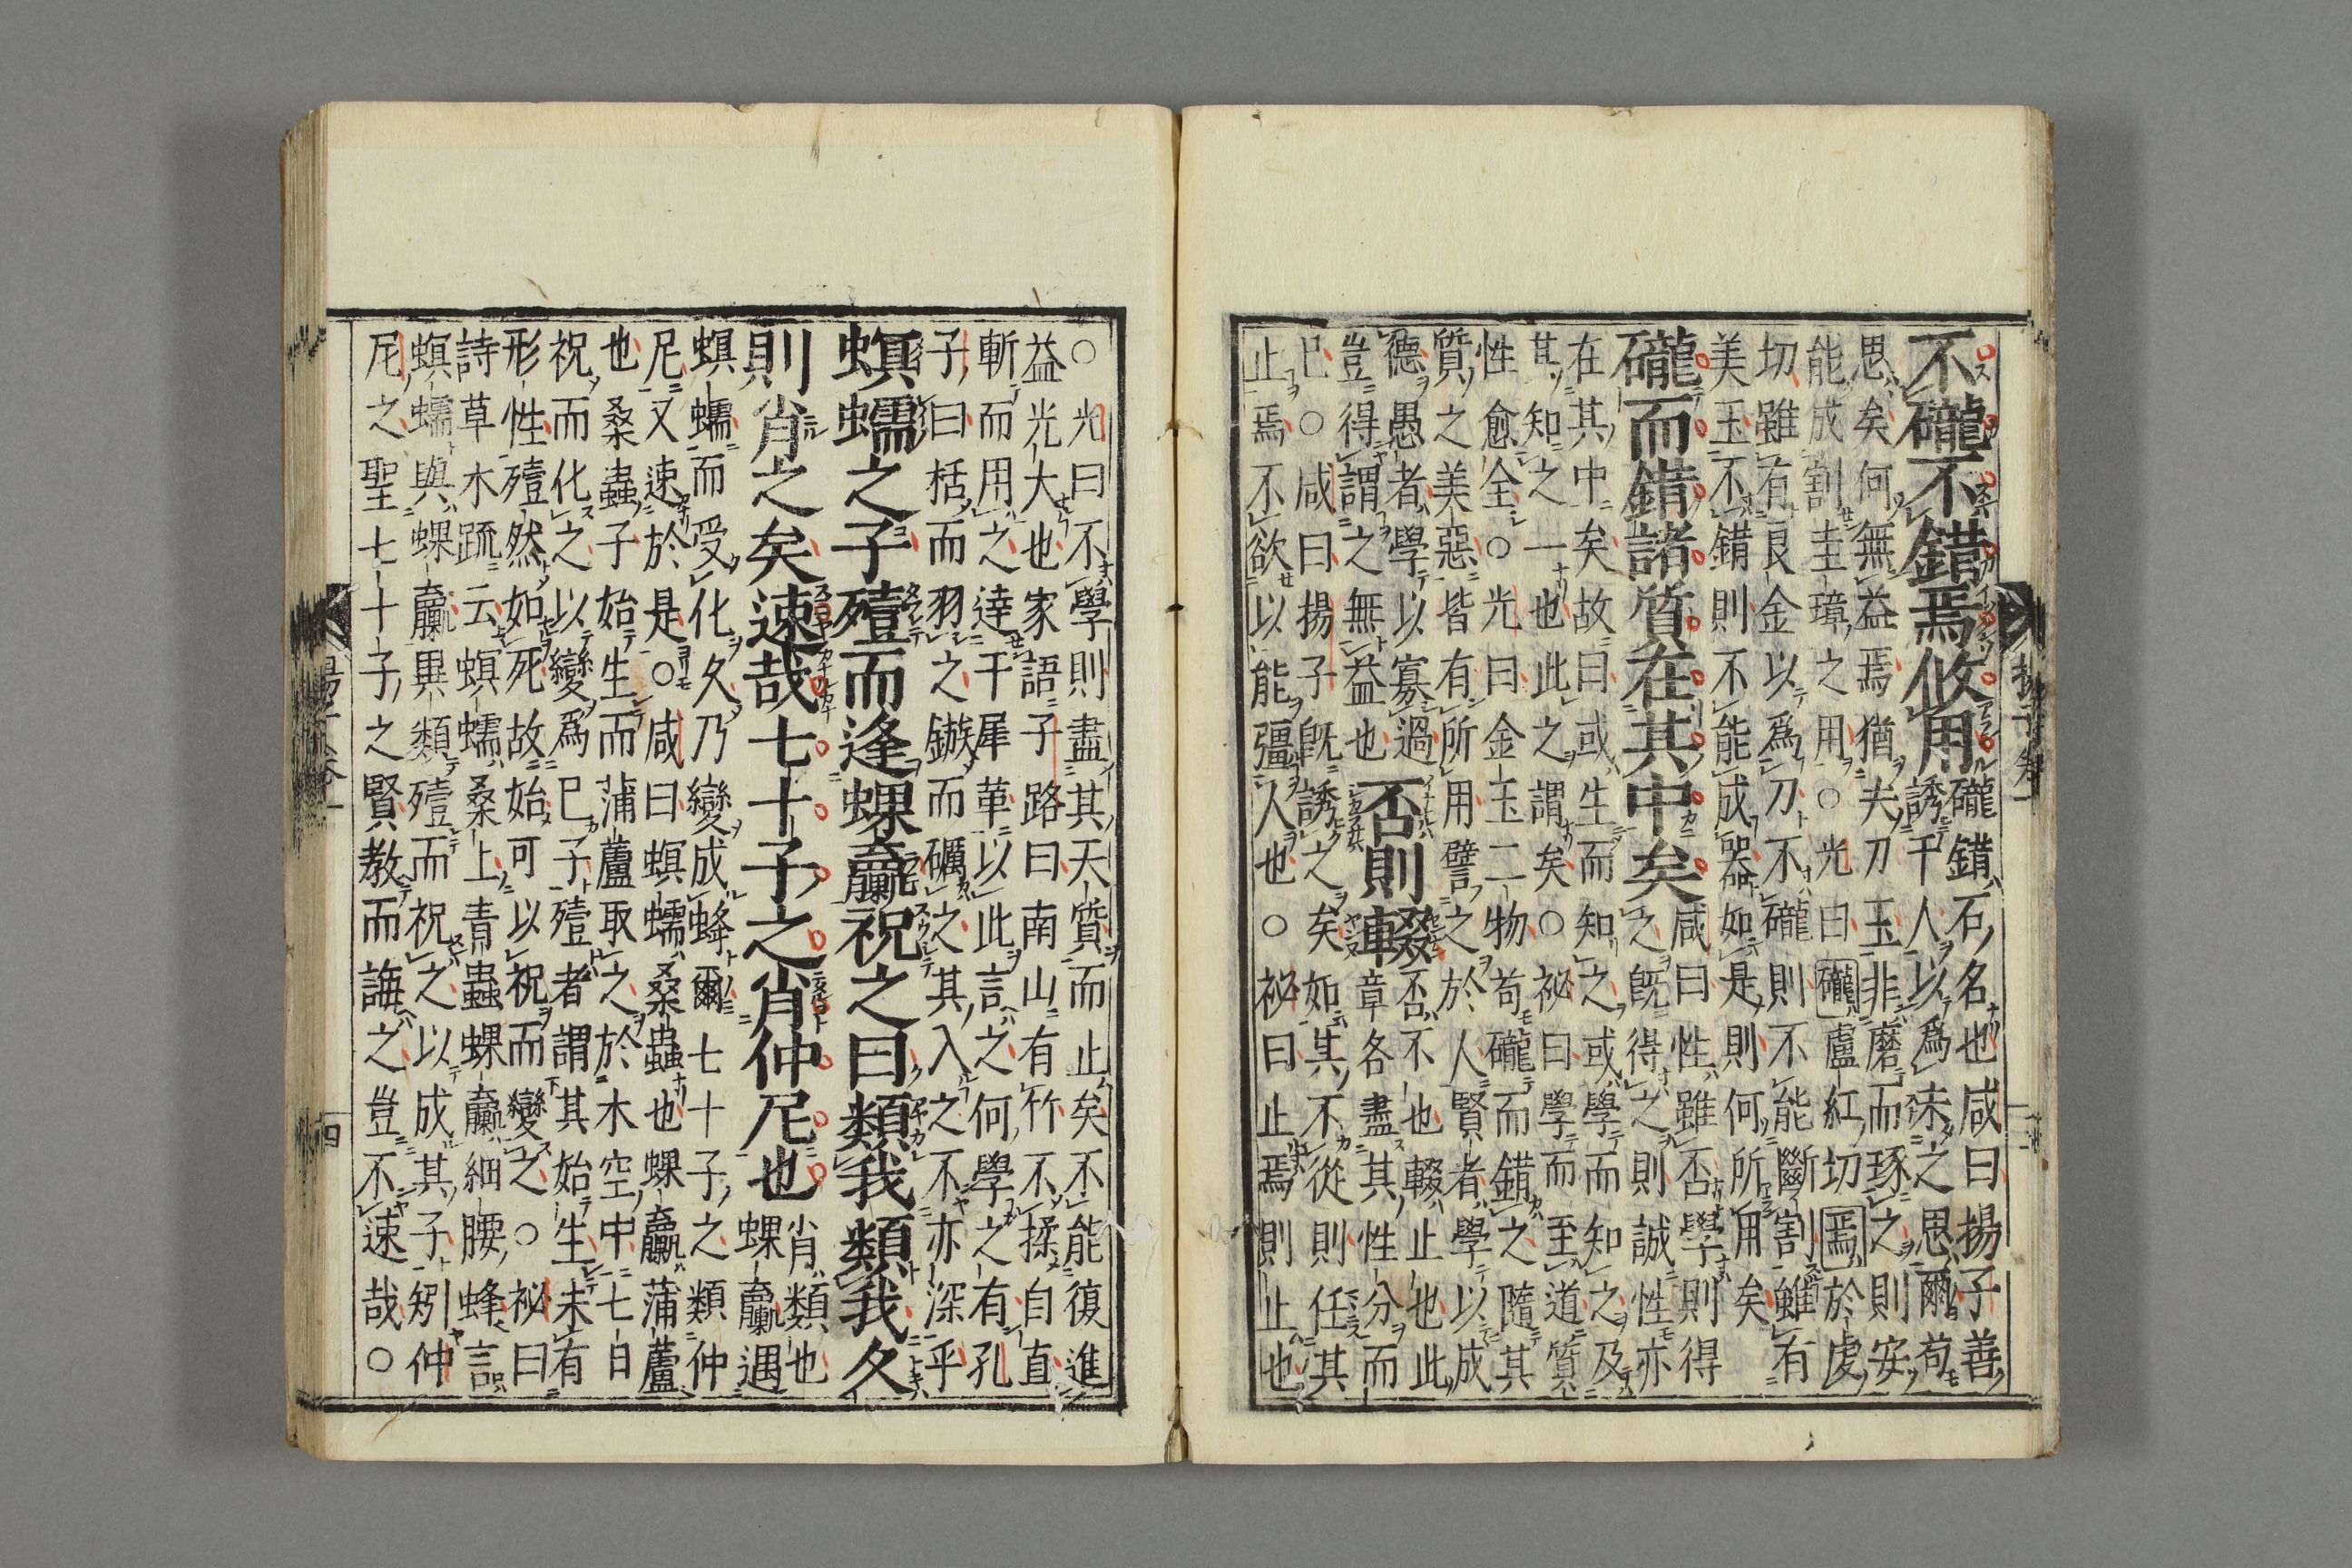 不礲不錯焉攸用
礲錯石名也咸曰揚子善
誘千人以爲未之思爾苟
思矣何無益焉猶夫刀玉非磨而琢之則安
能成割圭璋之用○光曰礲盧紅切焉於虔
切雖有良金以爲刀不礲則不能斷割雖有
美玉不錯則不能成器如是則何所用矣
礲而錯諸質在其中矣
咸曰性雖否學則得
之旣得之則誠性亦
在其中矣故曰或生而知之或學而知之及
其知之一也此之謂矣○祕曰學而至道質
性愈全○光曰金玉二物苟礲而錯之隨其
質之美惡皆有所用譬之於人賢者學以成
德愚者學以寡過
豈得謂之無益也
否則輟
否不也輟止也此
章各盡其性分而
已○咸曰揚子旣誘之矣如其不從則任其
止焉不欲以能彊人也○祕曰止焉則止也
○光曰不學則盡其天質而止矣不能復進
益光大也家語子路曰南山有竹不揉自直
斬而用之達于犀革以此言之何學之有孔
子曰栝而羽之鏃而礪之其入之不亦深乎
螟蠕之子殪而逢蜾蠃祝之曰類我類我久
則肖之矣速哉七十子之肖仲尼也
肖類也
蜾蠃遇
螟蠕而受化久乃變成蜂爾七十子之類仲
尼又速於是○咸曰螟蠕桑蟲也蜾蠃蒲蘆
也桑蟲子始生而蒲蘆取之於木空中七日
祝而化之以變爲已子殪者謂其始生未有
形性殪然如死故始可以祝而變之○祕曰
詩草木疏云螟蠕桑上青蟲蜾蠃細腰蜂言
螟蠕與蜾蠃異類殪而祝之以成其子矧仲
尼之聖七十子之賢教而誨之豈不速哉○